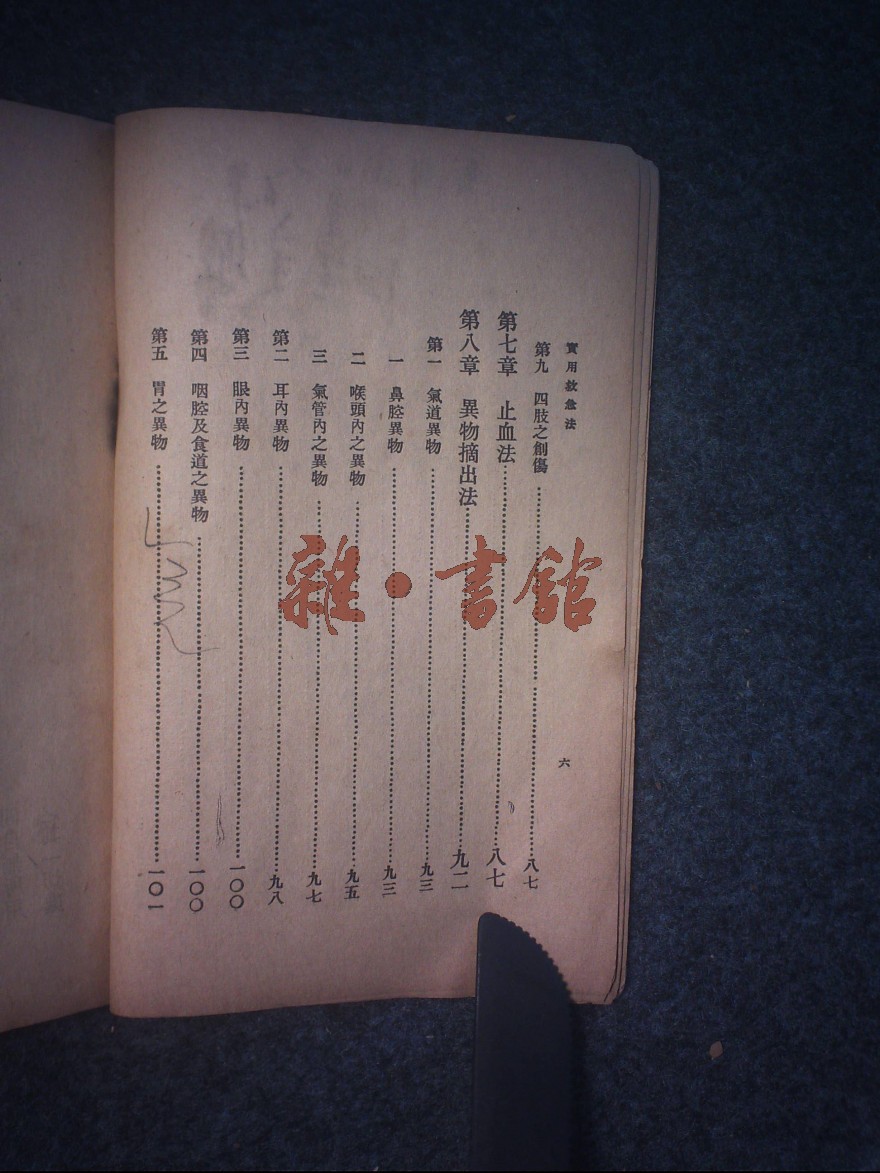 實用救急法
六
第九　四肢之創傷……八七
第七章　止血法……八七
第八章　異物摘出法……九二
第一　氣道異物……九三
一　鼻腔異物……九三
二　喉頭內之異物……九五
三　氣管內之異物……九七
第二　耳內異物……九八
第三　眼內異物……一〇〇
第四　咽腔及食道之異物……一〇〇
第五　胃之異物……一〇一
雜·書館